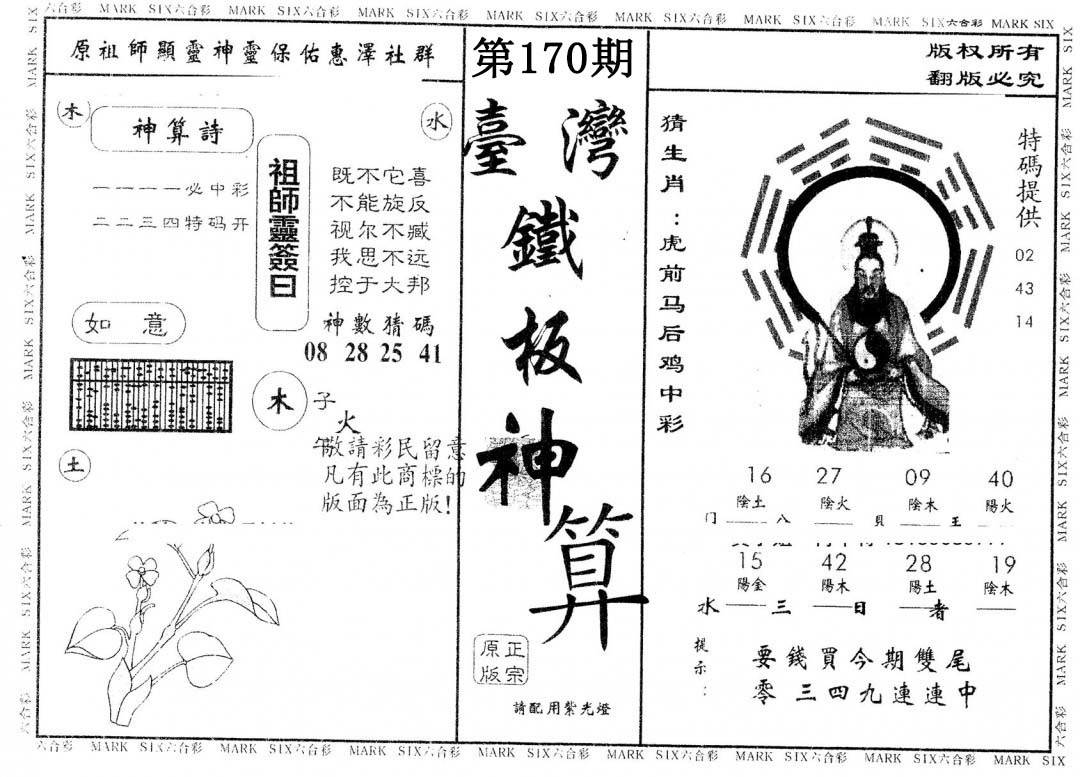 六合彩 MARK SIX六合彩 MARK SIX六合彩 MARK SIX六合彩 MARK SIX六合彩 MARK SIX六合彩 MARK SIX六合彩 MARK SIX六合彩 MARK SIX
原祖師顯靈神靈保佑惠澤社群
第170期
版权所有
翻版必究
木
神算詩
水
一一一一必中彩
二二三四特码开
祖師靈簽曰
既不它喜
不能旋反
视尔不臧
我思不远
控于大邦
如意
神數猜碼
08 28 25 41
木
子
火
午敬請彩民留意
凡有此商標的
版面為正版!
土
臺灣
鐵
板
神
算
原正
版宗
請配用紫光燈
猜生肖:虎前马后鸡中彩
特碼提供
02
43
14
16 27 09 40
陰土 陰火 陰木 陽火
门 八 貝 王
15 42 28 19
陽金 陽木 陽土 陰木
水 三 日 者
提示:
要錢買今期雙尾
零三四九連連中
六合彩 MARK SIX六合彩 MARK SIX六合彩 MARK SIX六合彩 MARK SIX六合彩 MARK SIX六合彩 MARK SIX六合彩 MARK SIX六合彩 MARK SIX